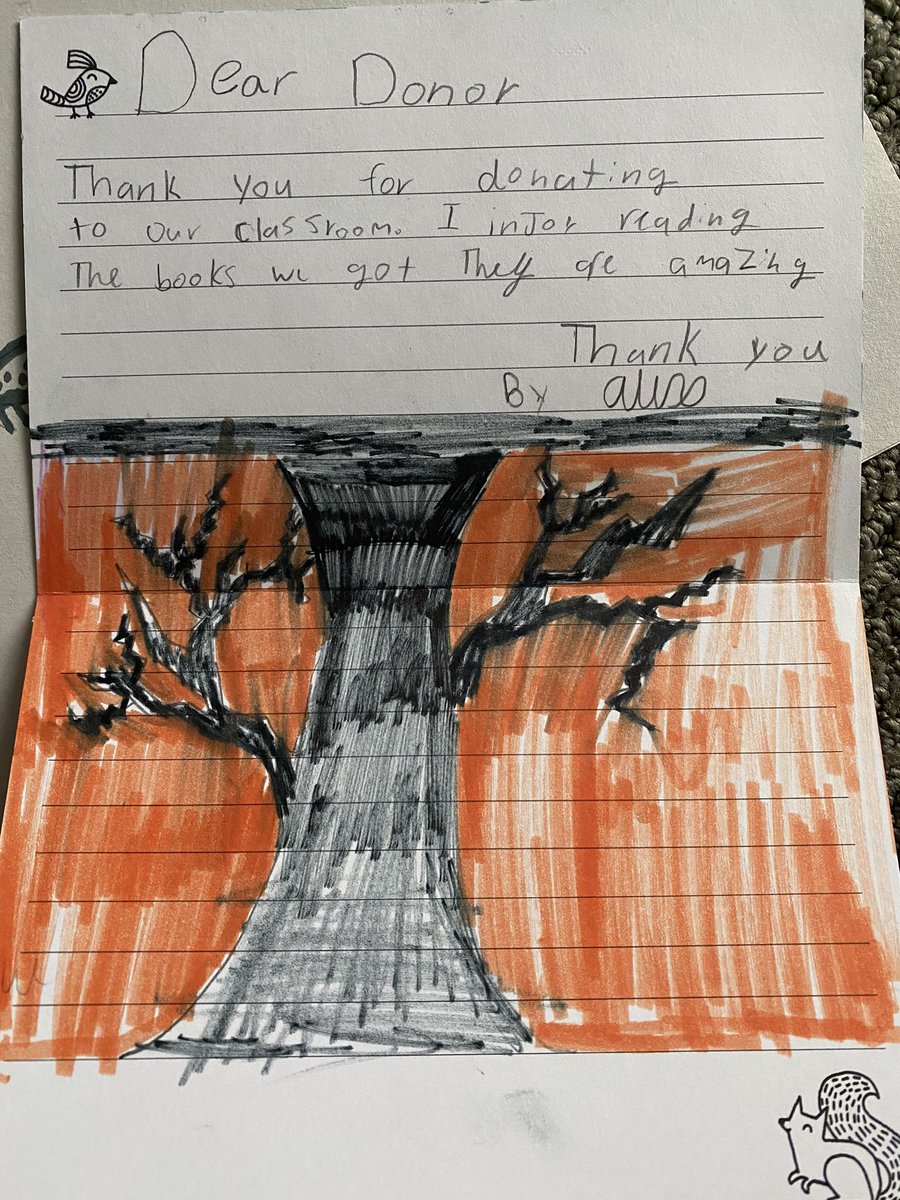 Dear Donor
Thank you for donating
to our classroom. I injor reading
The books we got They are amazing
Thank you
By